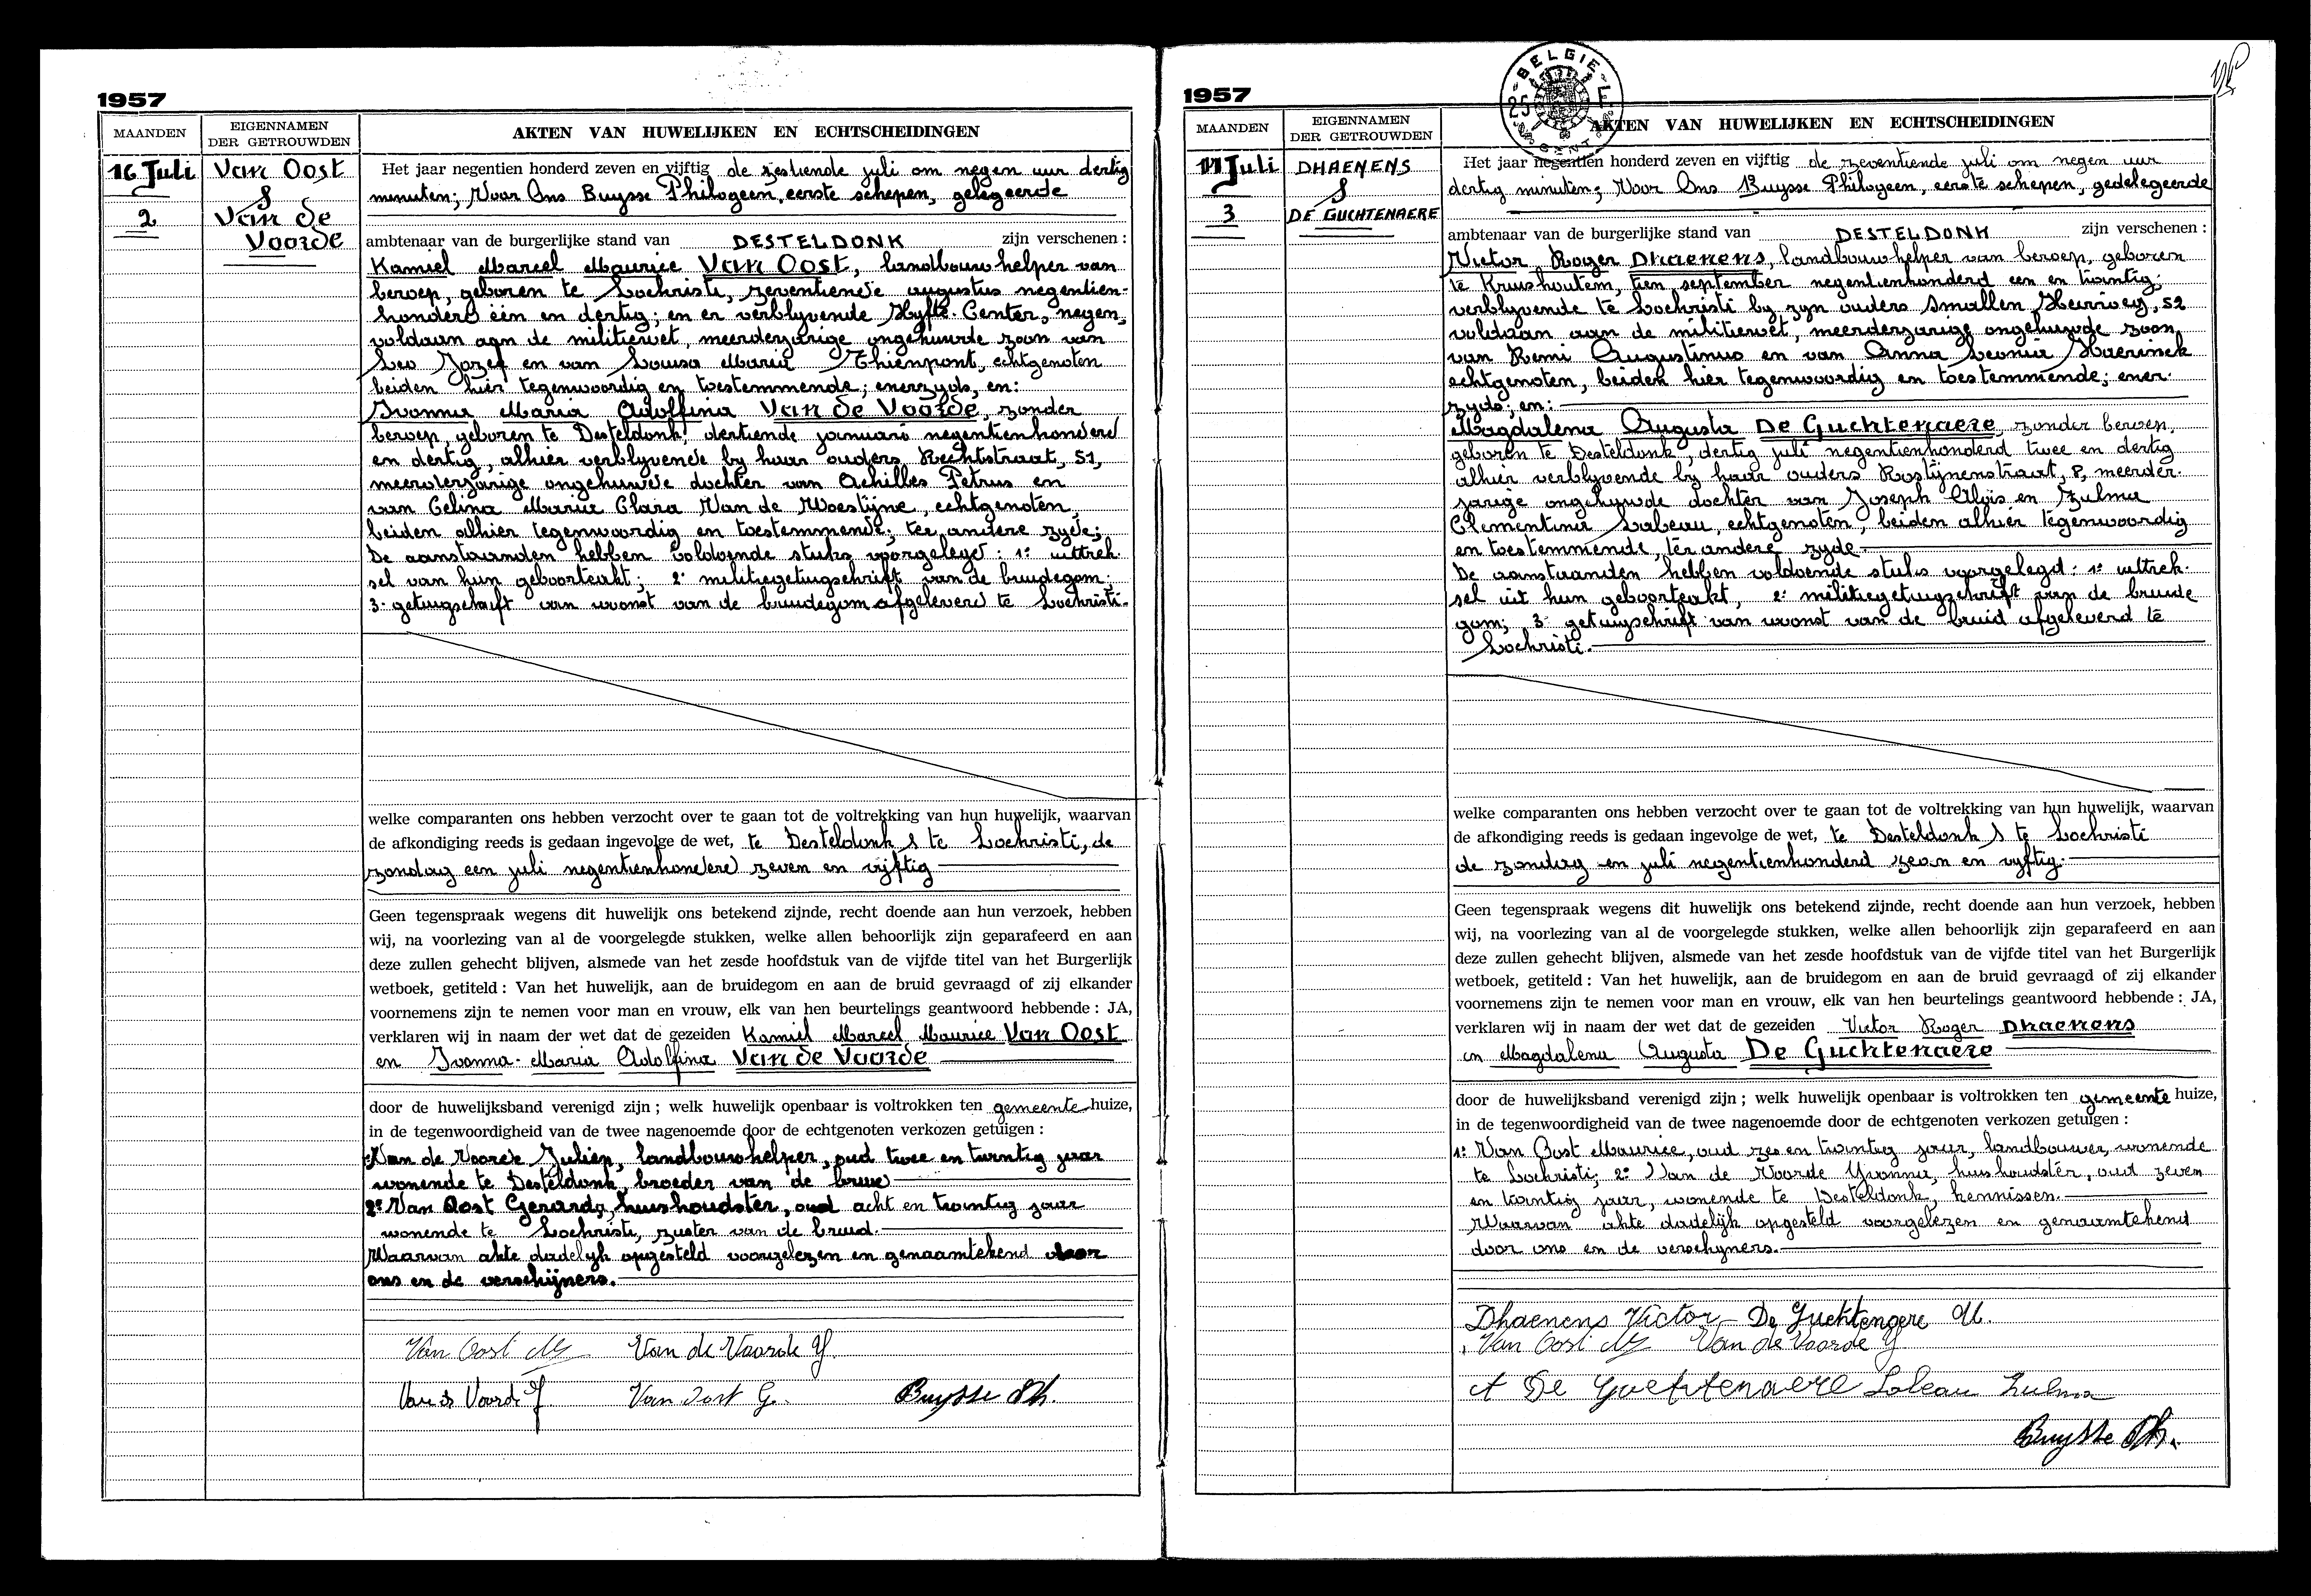 1957
MAANDEN
EIGENNAMEN
DER GETROUWDEN
AKTEN VAN HUWELIJKEN EN ECHTSCHEIDINGEN
16 Juli
2
Van Oost
&
Van de
Voorde
Het jaar negentien honderd zeven en vijftig de zestiende juli om negen uur dertig
minuten; Voor Ons Buysse Philogeen, eerste schepen, gelegeerde
ambtenaar van de burgerlijke stand van DESTELDONK zijn verschenen :
Kamiel Marcel Maurice Van Oost, landbouwhelper van
beroep, geboren te Lochristi, zeventiende augustus negentien-
honderd één en dertig; en er verblyvende Hyfte-Center, negen,
voldaan aan de militiewet, meerderjarige ongehuwde zoon van
Leo Jozef en van Louisa Maria Thienpont, echtgenoten
beiden hier tegenwoordig en toestemmende; enerzyds, en:
Ivonna Maria Adolfina Van de Voorde, zonder
beroep, geboren te Desteldonk, dertiende januari negentienhonderd
en dertig, alhier verblyvende by haar ouders Rechtstraat, 51,
meerderjarige ongehuwde dochter van Achilles Petrus en
van Celina Maria Clara Van de Woestijne, echtgenoten,
beiden alhier tegenwoordig en toestemmende; ter andere zyde;
De aanstaanden hebben voldoende stuks voorgelegd: 1° uittrek-
sel van hun geboorteakt; 2° militiegetuigschrift van de bruidegom;
3° getuigschrift van woonst van de bruidegom afgeleverd te Lochristi.
welke comparanten ons hebben verzocht over te gaan tot de voltrekking van hun huwelijk, waarvan
de afkondiging reeds is gedaan ingevolge de wet, te Desteldonk & te Lochristi, de
zondag een juli negentienhonderd zeven en vijftig
Geen tegenspraak wegens dit huwelijk ons betekend zijnde, recht doende aan hun verzoek, hebben
wij, na voorlezing van al de voorgelegde stukken, welke allen behoorlijk zijn geparafeerd en aan
deze zullen gehecht blijven, alsmede van het zesde hoofdstuk van de vijfde titel van het Burgerlijk
wetboek, getiteld : Van het huwelijk, aan de bruidegom en aan de bruid gevraagd of zij elkander
voornemens zijn te nemen voor man en vrouw, elk van hen beurtelings geantwoord hebbende : JA,
verklaren wij in naam der wet dat de gezeiden Kamiel Marcel Maurice Van Oost
en Ivonna Maria Adolfina Van de Voorde
door de huwelijksband verenigd zijn ; welk huwelijk openbaar is voltrokken ten gemeente huize,
in de tegenwoordigheid van de twee nagenoemde door de echtgenoten verkozen getuigen :
Van de Voorde Julien, landbouwhelper, oud twee en twintig jaar
wonende te Desteldonk, broeder van de bruid
2° Van Oost Gerarda, huishoudster, oud acht en twintig jaar
wonende te Lochristi, zuster van de bruid.
Waarvan akte dadelyk opgesteld voorgelezen en genaamtekend door
ons en de verschijners.
Van Oost M Van de Voorde Y.
Van de Voorde J Van Oost G. Buysse Ph.
1957
BELGIE
25
GENT
MAANDEN
EIGENNAMEN
DER GETROUWDEN
AKTEN VAN HUWELIJKEN EN ECHTSCHEIDINGEN
17 Juli
3
DHAENENS
&
DE GUCHTENAERE
Het jaar negentien honderd zeven en vijftig de zeventiende juli om negen uur
dertig minuten; Voor Ons Buysse Philogeen, eerste schepen, gedelegeerde
ambtenaar van de burgerlijke stand van DESTELDONK zijn verschenen :
Victor Roger Dhaenens, landbouwhelper van beroep, geboren
te Kruishoutem, tien september negentienhonderd een en twintig;
verblyvende te Lochristi by zyn ouders Smallen Heirweg, 52
voldaan aan de militiewet, meerderjarige ongehuwde zoon,
van Remi Augustinus en van Anna Leonia Haerinck
echtgenoten, beiden hier tegenwoordig en toestemmende; ener-
zyds; en:
Magdalena Augusta De Guchtenaere, zonder beroep,
geboren te Desteldonk, dertig juli negentienhonderd twee en dertig
alhier verblyvende by haar ouders Rostijnenstraat, 8, meerder-
jarige ongehuwde dochter van Joseph Aloïs en Zulma
Clementina Labeau, echtgenoten, beiden alhier tegenwoordig
en toestemmende, ter andere zyde.
De aanstaanden hebben voldoende stuks voorgelegd: 1° uittrek-
sel uit hun geboorteakt, 2° militiegetuigschrift van de bruide
gom; 3° getuigschrift van woonst van de bruid afgeleverd te
Lochristi.
welke comparanten ons hebben verzocht over te gaan tot de voltrekking van hun huwelijk, waarvan
de afkondiging reeds is gedaan ingevolge de wet, te Desteldonk & te Lochristi
de zondag een juli negentienhonderd zeven en vyftig.
Geen tegenspraak wegens dit huwelijk ons betekend zijnde, recht doende aan hun verzoek, hebben
wij, na voorlezing van al de voorgelegde stukken, welke allen behoorlijk zijn geparafeerd en aan
deze zullen gehecht blijven, alsmede van het zesde hoofdstuk van de vijfde titel van het Burgerlijk
wetboek, getiteld : Van het huwelijk, aan de bruidegom en aan de bruid gevraagd of zij elkander
voornemens zijn te nemen voor man en vrouw, elk van hen beurtelings geantwoord hebbende : JA,
verklaren wij in naam der wet dat de gezeiden Victor Roger Dhaenens
en Magdalena Augusta De Guchtenaere
door de huwelijksband verenigd zijn ; welk huwelijk openbaar is voltrokken ten gemeente huize,
in de tegenwoordigheid van de twee nagenoemde door de echtgenoten verkozen getuigen :
1° Van Oost Maurice, oud zes en twintig jaar, landbouwer, wonende
te Lochristi; 2° Van de Voorde Yvonna, huishoudster, oud zeven
en twintig jaar, wonende te Desteldonk, kennissen.
Waarvan akte dadelijk opgesteld voorgelezen en genaamtekend
door ons en de verschyners.
Dhaenens Victor De Guchtenaere M.
Van Oost M Van de Voorde Y
A De Guchtenaere Labeau Zulma
Buysse Ph.